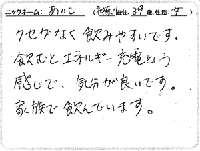 ニックネーム: あいこ (池端 様) 39歳、性別 女
クセがなく飲みやすいです。
飲むとエネルギー充電という
感じで、気分が良いです。
家族で飲んでいます。